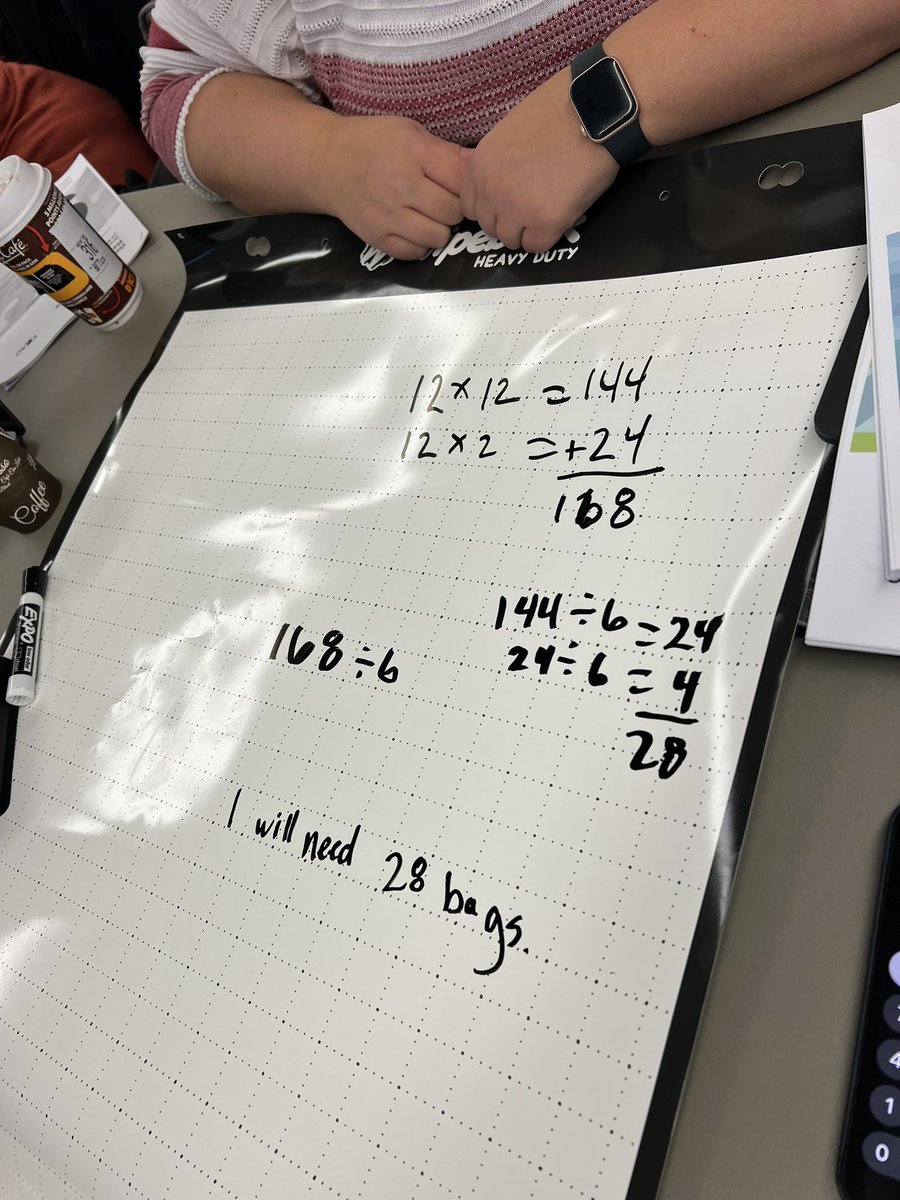 HEAVY DUTY
Café
316
12 × 12 = 144
12 × 2 = +24
168
144 ÷ 6 = 24
24 ÷ 6 = 4
28
168 ÷ 6
I will need 28 bags.
EXPO
Coffee
4
1
0